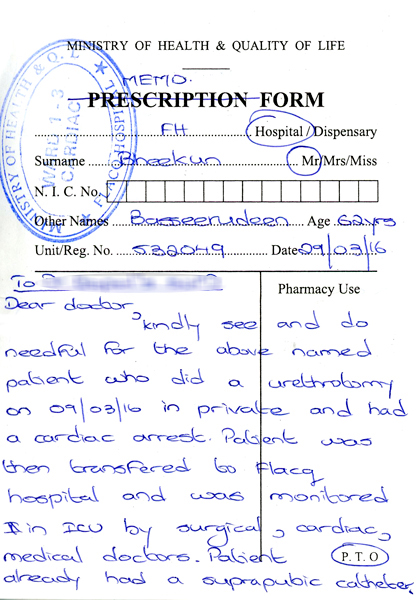 MINISTRY OF HEALTH & QUALITY OF LIFE
MEMO.
PRESCRIPTION FORM
MINISTRY OF HEALTH & Q.L
FLACQ HOSPITAL
WARD 1-3
CARDIAC
FH Hospital/Dispensary
Surname Bheekun Mr/Mrs/Miss
N. I. C. No.
Other Names Basseerudeen Age 62yrs
Unit/Reg. No. 532049 Date 09/03/16
To
Pharmacy Use
Dear doctor,
kindly see and do
needful for the above named
patient who did a urethrotomy
on 09/03/16 in private and had
a cardiac arrest. Patient was
then transfered to Flacq
hospital and was monitored
in ICU by surgical, cardiac,
medical doctors. Patient
P.T.O
already had a suprapubic catheter.